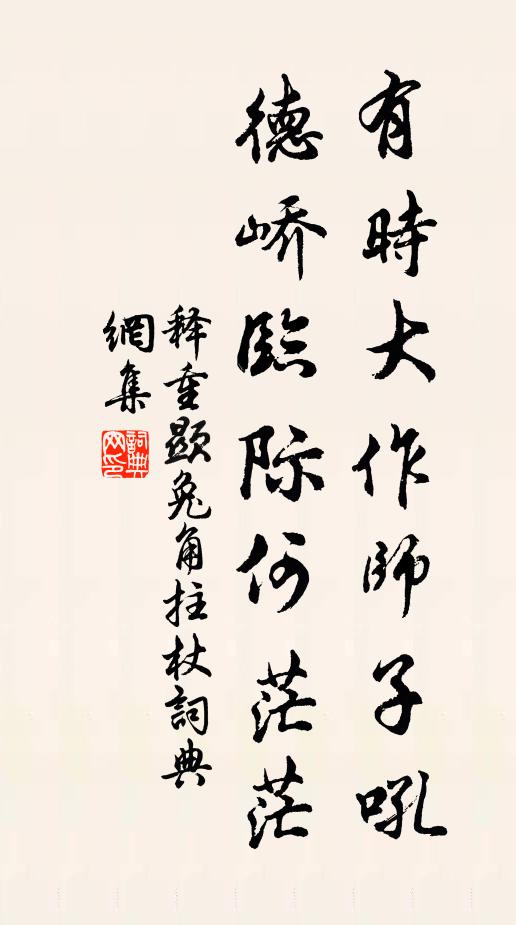 有時大作師子吼
德峤臨际何茫茫
释重顯兔角拄杖詞典
網集
詞典
网印